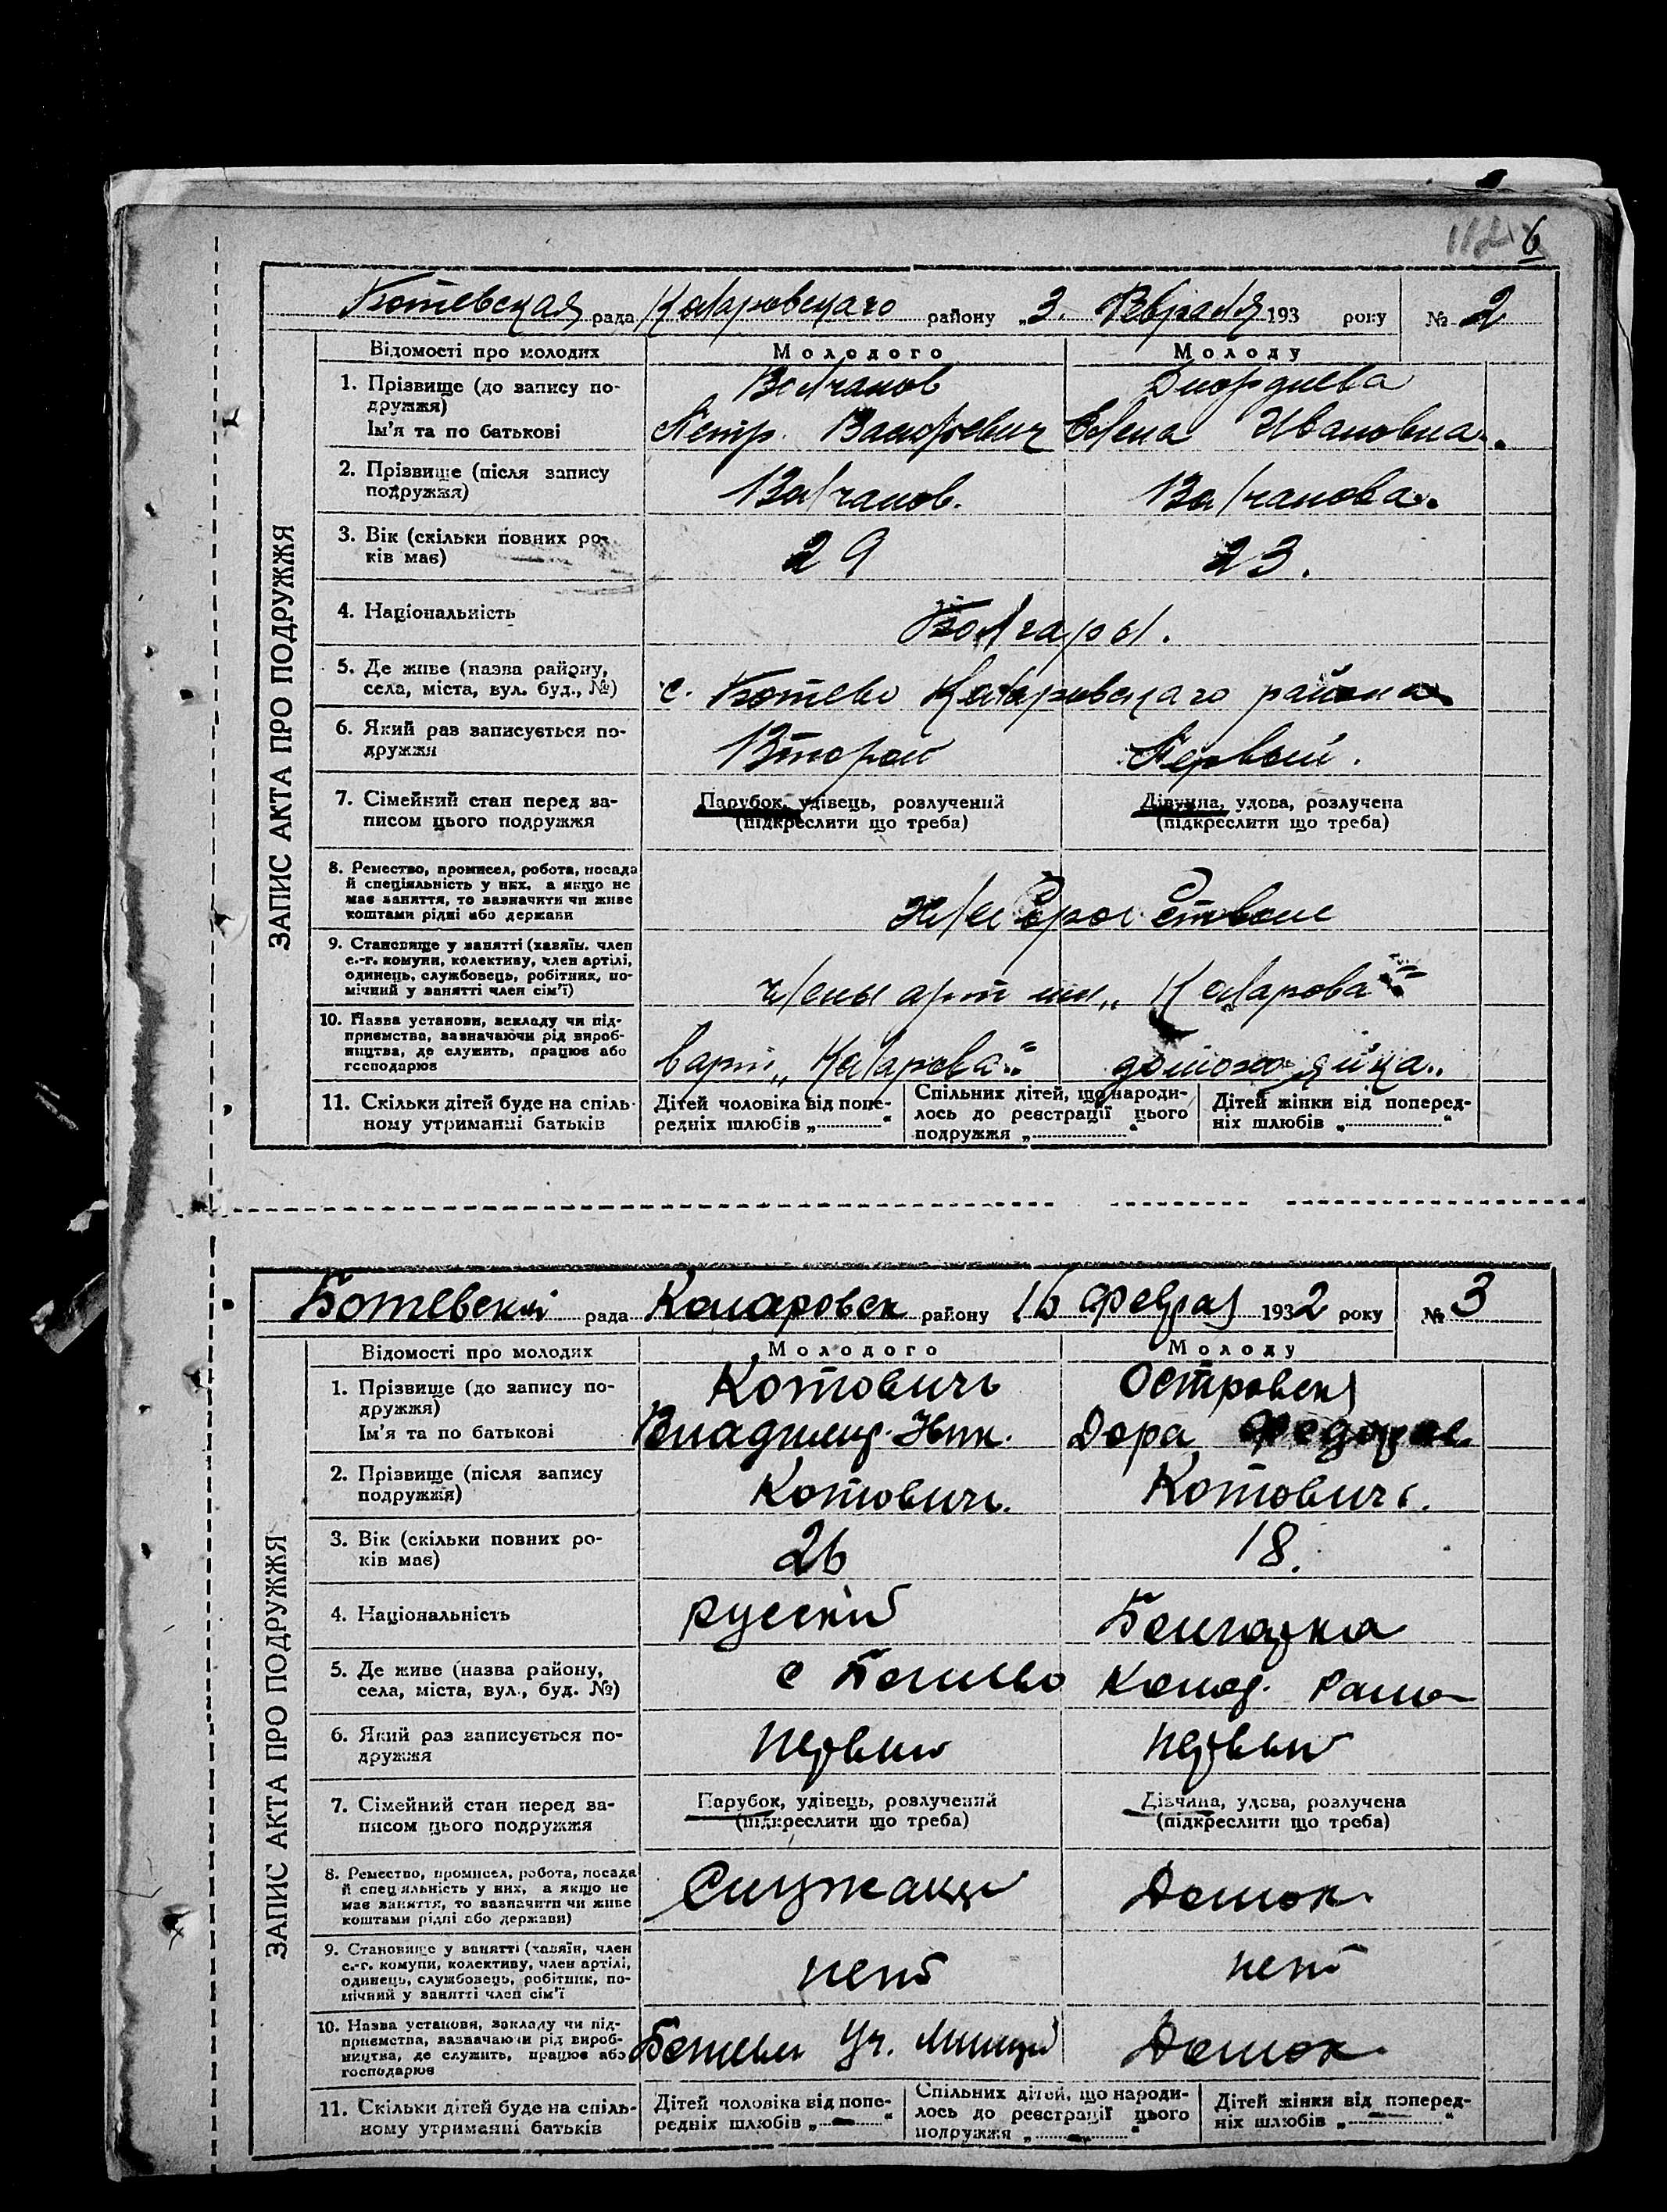 6
Ботевская рада Коларовского району „3. Февраля 193 року № 2
ЗАПИС АКТА ПРО ПОДРУЖЖЯ
Відомості про молодих Молодого Молоду
1. Прізвище (до запису по- Волчанов
дружжя)
Ім'я та по батькові Петр. Елена Ивановна.
2. Прізвище (після запису
подружжя) Волчанов. Волчанова.
3. Вік (скільки повних ро-
ків має) 29 23.
4. Національність Болгары.
5. Де живе (назва району,
села, міста, вул. буд., №) с. Ботево Коларовскаго района
6. Який раз записується по-
дружжя Второй Первый.
7. Сімейний стан перед за- Парубок, удівець, розлучений Дівчина, удова, розлучена
писом цього подружжя (підкреслити що треба) (підкреслити що треба)
8. Ремество, промисел, робота, посада
й спеціяльність у них, а якщо не
має заняття, то зазначити чи живе
коштами рідні або держави
9. Становище у занятті (хазяїн, член
с.-г. комуни, колективу, член артілі,
одинець, службовець, робітник, по-
мічний у занятті член сім'ї) Члены артели „Коларова“
10. Назва установи, закладу чи під-
приємства, зазначаючи рід вироб-
ництва, де служить, працює або
господарює в арт „Коларова“ домохозяйка.
11. Скільки дітей буде на спіль- Дітей чоловіка від попе- Спільних дітей, що народи- Дітей жінки від поперед-
ному утриманні батьків редніх шлюбів „ “ лось до реєстрації цього ніх шлюбів „ “
подружжя „ “
Ботевский рада Коларовск району 16 феврал 1932 року № 3
ЗАПИС АКТА ПРО ПОДРУЖЖЯ
Відомості про молодих Молодого Молоду
1. Прізвище (до запису по- Котовичь
дружжя)
Ім'я та по батькові Владимир. Ник. Дора
2. Прізвище (після запису
подружжя) Котовичь. Котовичь.
3. Вік (скільки повних ро-
ків має) 26 18.
4. Національність русский Болгарка
5. Де живе (назва району,
села, міста, вул., буд. №) с Ботево Колар.
6. Який раз записується по-
дружжя первый первый
7. Сімейний стан перед за- Парубок, удівець, розлучений Дівчина, удова, розлучена
писом цього подружжя (підкреслити що треба) (підкреслити що треба)
8. Ремество, промисел, робота, посада
й спеціяльність у них, а якщо не
має заняття, то зазначити чи живе
коштами рідні або держави) Служащи Домох.
9. Становище у занятті (хазяїн, член
с.-г. комуни, колективу, член артілі,
одинець, службовець, робітник, по-
мічний у занятті член сім'ї нет нет
10. Назва установи, закладу чи під-
приємства, зазначаючи рід вироб-
ництва, де служить, працює або
господарює Уч. Милиции Домох.
11. Скільки дітей буде на спіль- Дітей чоловіка від попе- Спільних дітей, що народи- Дітей жінки від поперед-
ному утриманні батьків редніх шлюбів „ — “ лось до реєстрації цього ніх шлюбів „ — “
подружжя „ — “